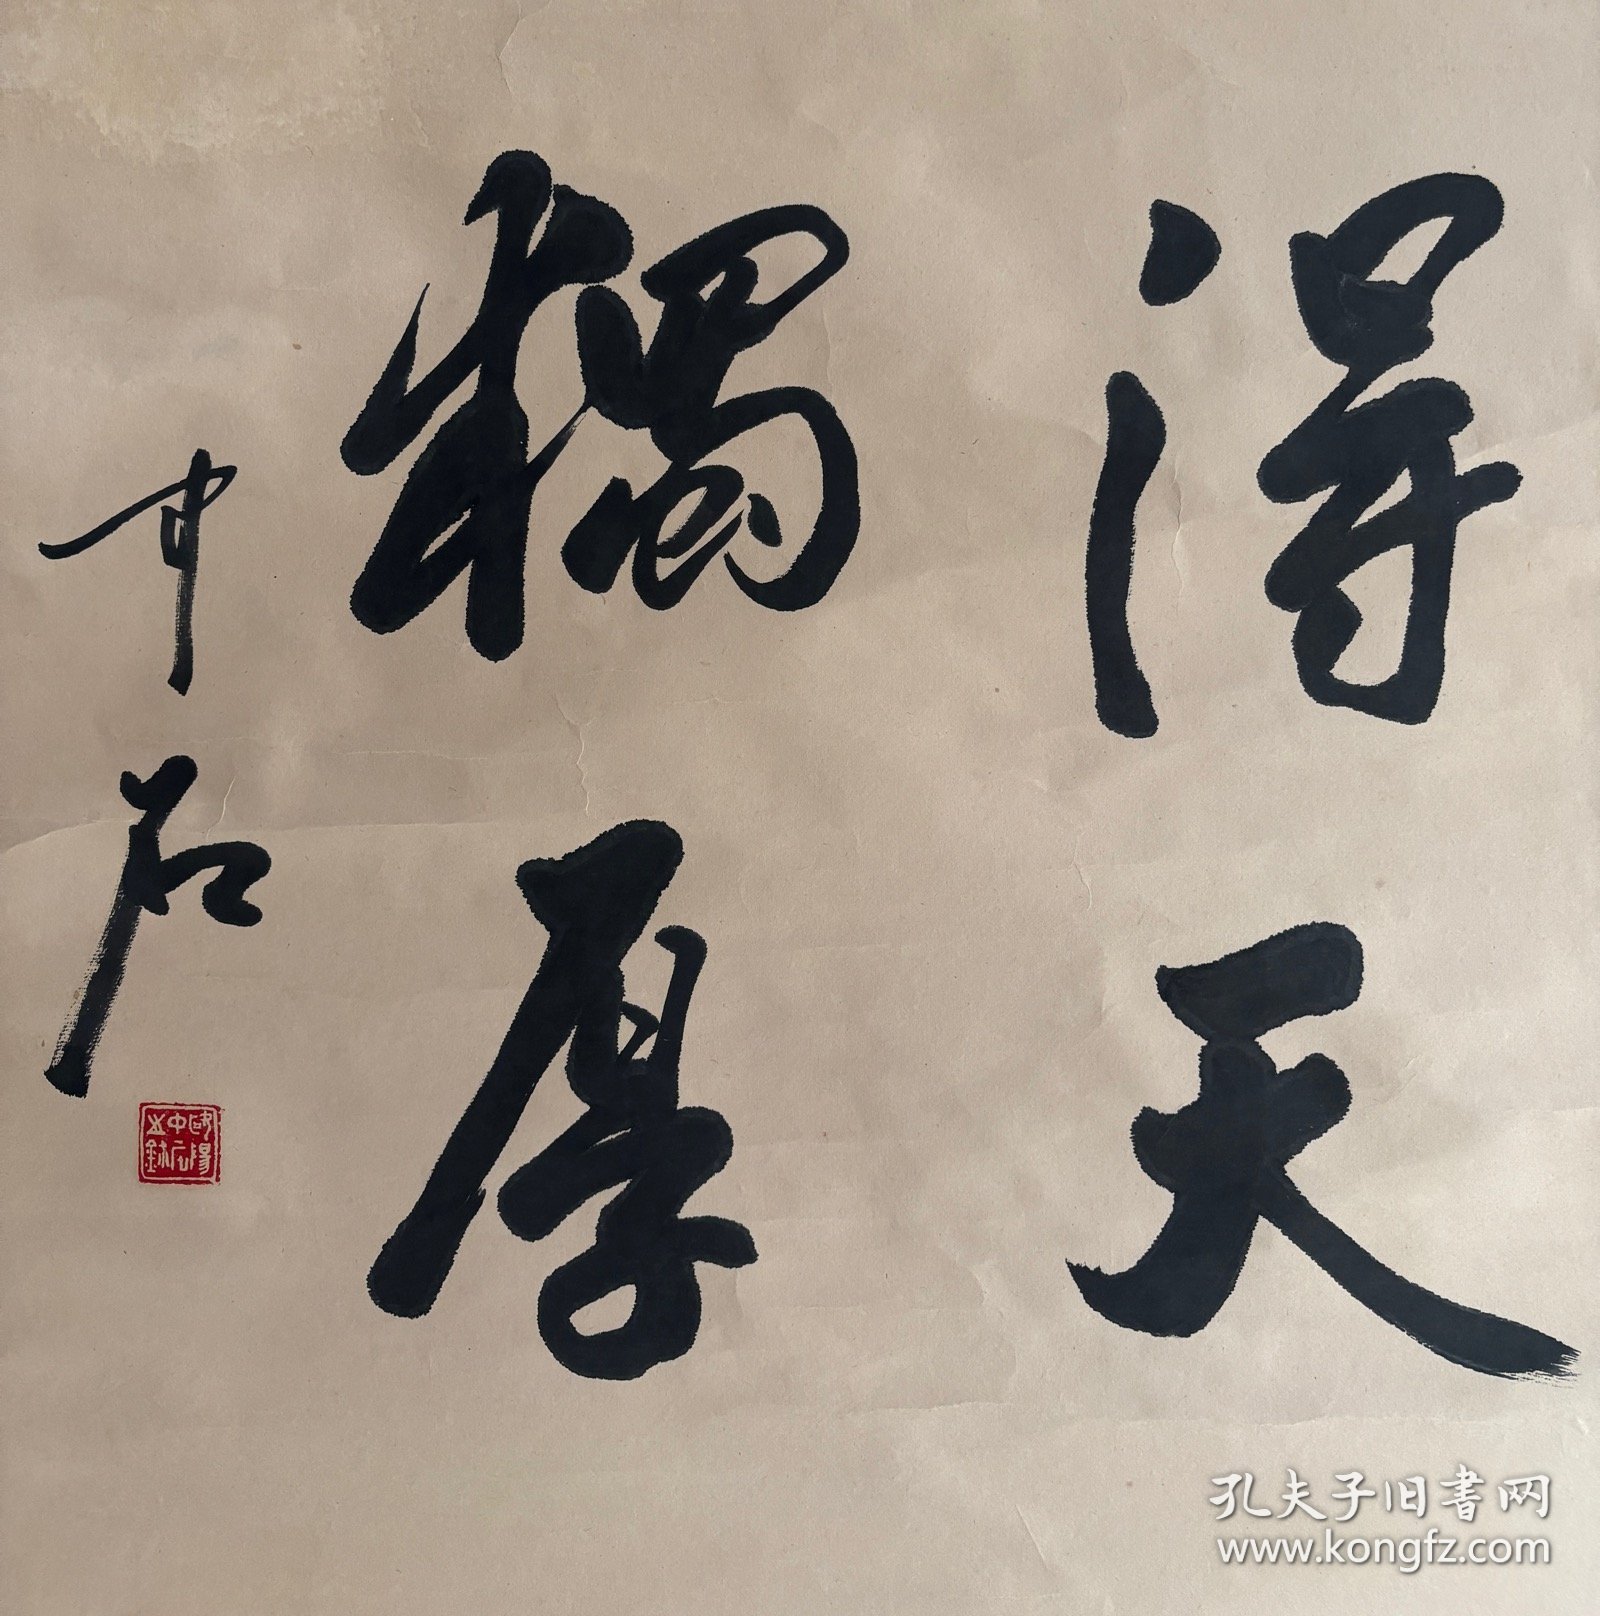 得天
獨厚
中石
欧陽中石之鉨
孔夫子旧书网
www.kongfz.com